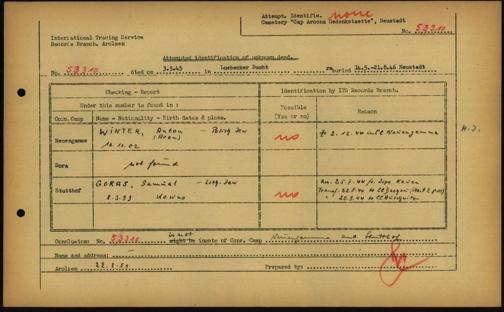 Attempt. Identific. none
Cemetery "Cap Arcona Gedenkstaette", Neustadt
No. 53310
International Tracing Service
Records Branch, Arolsen
Attempted identification of unknown dead.
No. 53310 died 3.5.45 in Luebecker Bucht re buried 14.5.-21.8.46 Neustadt
Checking - Report
Identification by ITS Records Branch.
Under this number is found in :
Possible
(Yes or no)
Reason
Conc.Camp
Name - Nationality - Birth dates & place.
Neuengamme
WINTER, Anton - Polish Jew
(Aron)
no.
+ 2.12.44 in CC Neuengamme
H.J.
Dora
not found
Stutthof
GORAS, Samuel - Lith. Jew
8.3.99 Kowno
no
20.8.44
Conclusion: No. 53310 might be is not inmate of Conc. Camp Neuengamme and Stutthof
Name and address:
Arolsen
Prepared by: